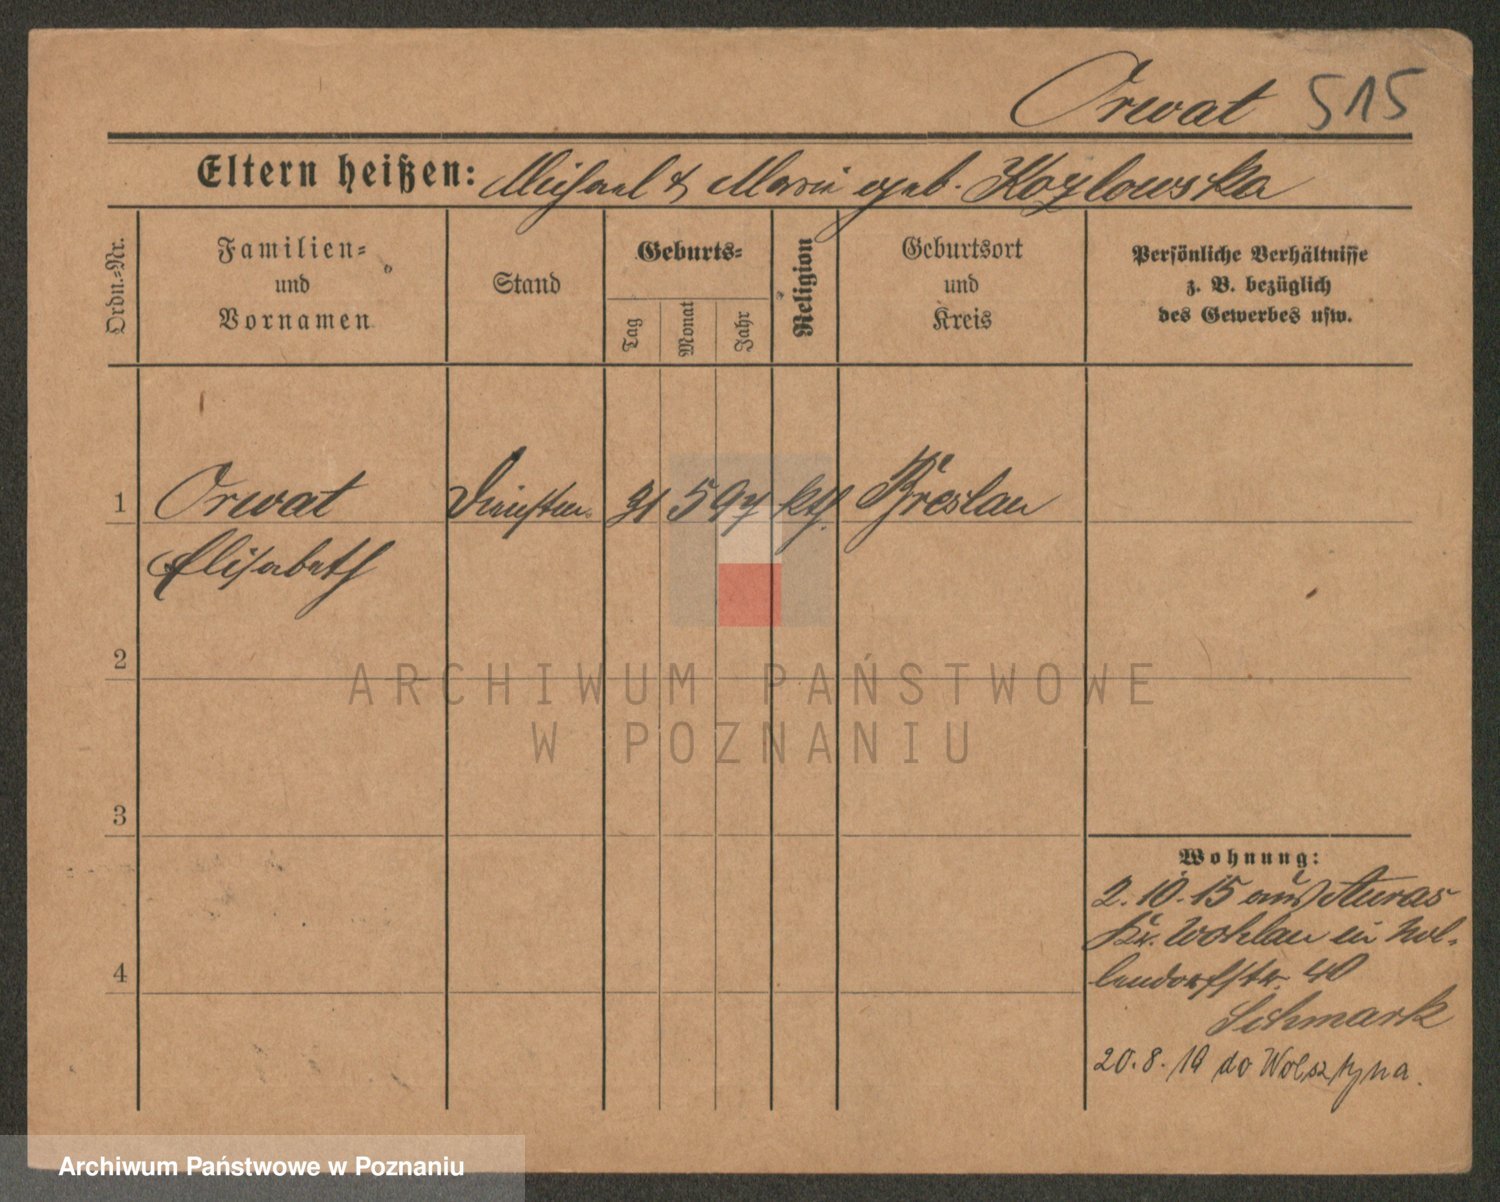 Orwat 515
Eltern heißen: Michael & Marie geb. Kozlowska
Ordn.-Nr.
Familien-
und
Vornamen
Stand
Geburts-
Tag
Monat
Jahr
Religion
Geburtsort
und
Kreis
Persönliche Verhältnisse
z. B. bezüglich
des Gewerbes usw.
1 Orwat 31 5 97 kth. Breslau
Elisabeth
2
3
4
Wohnung:
2.10.15 aus Auras
Kr. Wohlau in Nol-
lendorfstr. 40
Schmark
20.8.19 do Wolsztyna.
ARCHIWUM PAŃSTWOWE
W POZNANIU
Archiwum Państwowe w Poznaniu